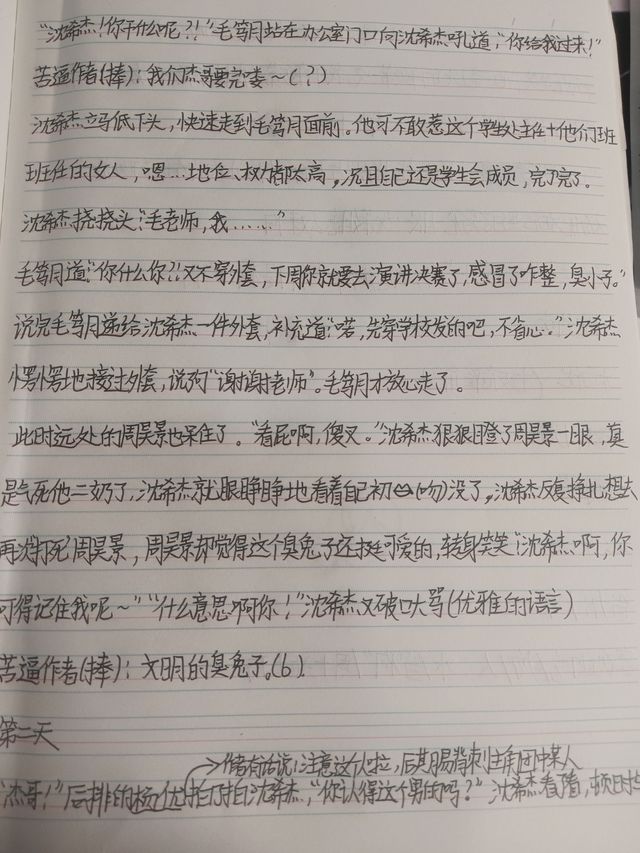 “沈希杰！你干什么呢？！”毛笃月站在办公室门口向沈希杰吼道，“你给我过来！”
苦逼作者(捧)：我们杰哥要完喽～(？)
沈希杰立马低下头，快速走到毛笃月面前。他可不敢惹这个学生处主任+他们班
班任的女人，嗯…地位、权力都太高，况且自己还是学生会成员，完了完了。
沈希杰挠挠头：“毛老师，我……”
毛笃月道：“你什么你？！又不穿外套，下周你就要去演讲决赛了，感冒了咋整，臭小子。”
说完毛笃月递给沈希杰一件外套，补充道：“喏，先穿学校发的吧，不省心。”沈希杰
愣愣地接过外套，说句“谢谢老师”。毛笃月才放心走了。
此时远处的周昊景也呆住了。“看屁啊，傻叉。”沈希杰狠狠瞪了周昊景一眼，真
是气死他二奶了，沈希杰就眼睁睁地看着自己初(吻)没了，沈希杰反复挣扎想去
再次打死周昊景，周昊景却觉得这个臭兔子还挺可爱的，转身笑笑：“沈希杰啊，你
可得记住我呢～”“什么意思啊你！”沈希杰又破口大骂(优雅的语言)
苦逼作者(捧)：文明的臭兔子。(6)
第二天
→作者有话说！注意这个人啦，后期背刺主角团中某人
“杰哥！”后排的杨优拍了拍沈希杰，“你认得这个男的吗？”沈希杰看着，顿时